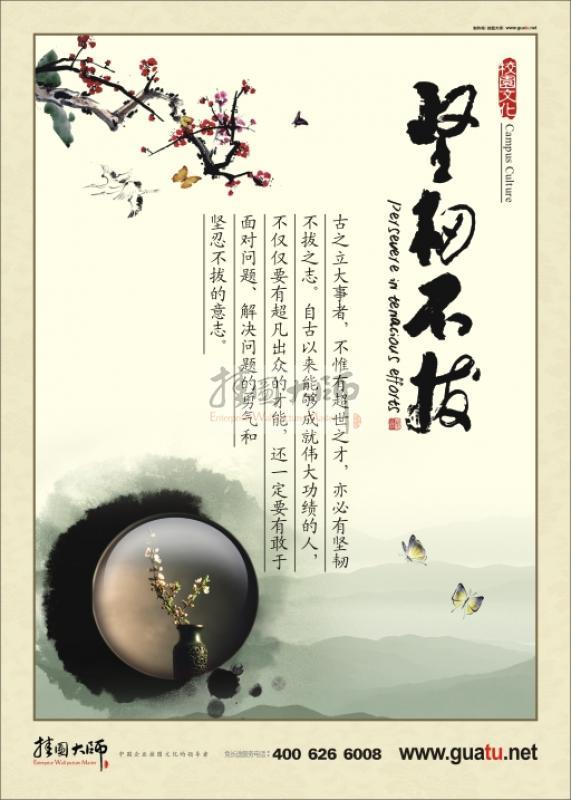 www.guatu.net
校园文化
Campus Culture
坚韧不拔
persevere in tenacious efforts
古之立大事者，不惟有超世之才，亦必有坚韧
不拔之志。自古以来能够成就伟大功绩的人，
不仅仅要有超凡出众的才能，还一定要有敢于
面对问题、解决问题的勇气和
坚忍不拔的意志。
挂图大师
Enterprise Wall picture Master
挂图大师
Enterprise Wall picture Master
中国企业挂图文化的领导者
400 626 6008
www.guatu.net